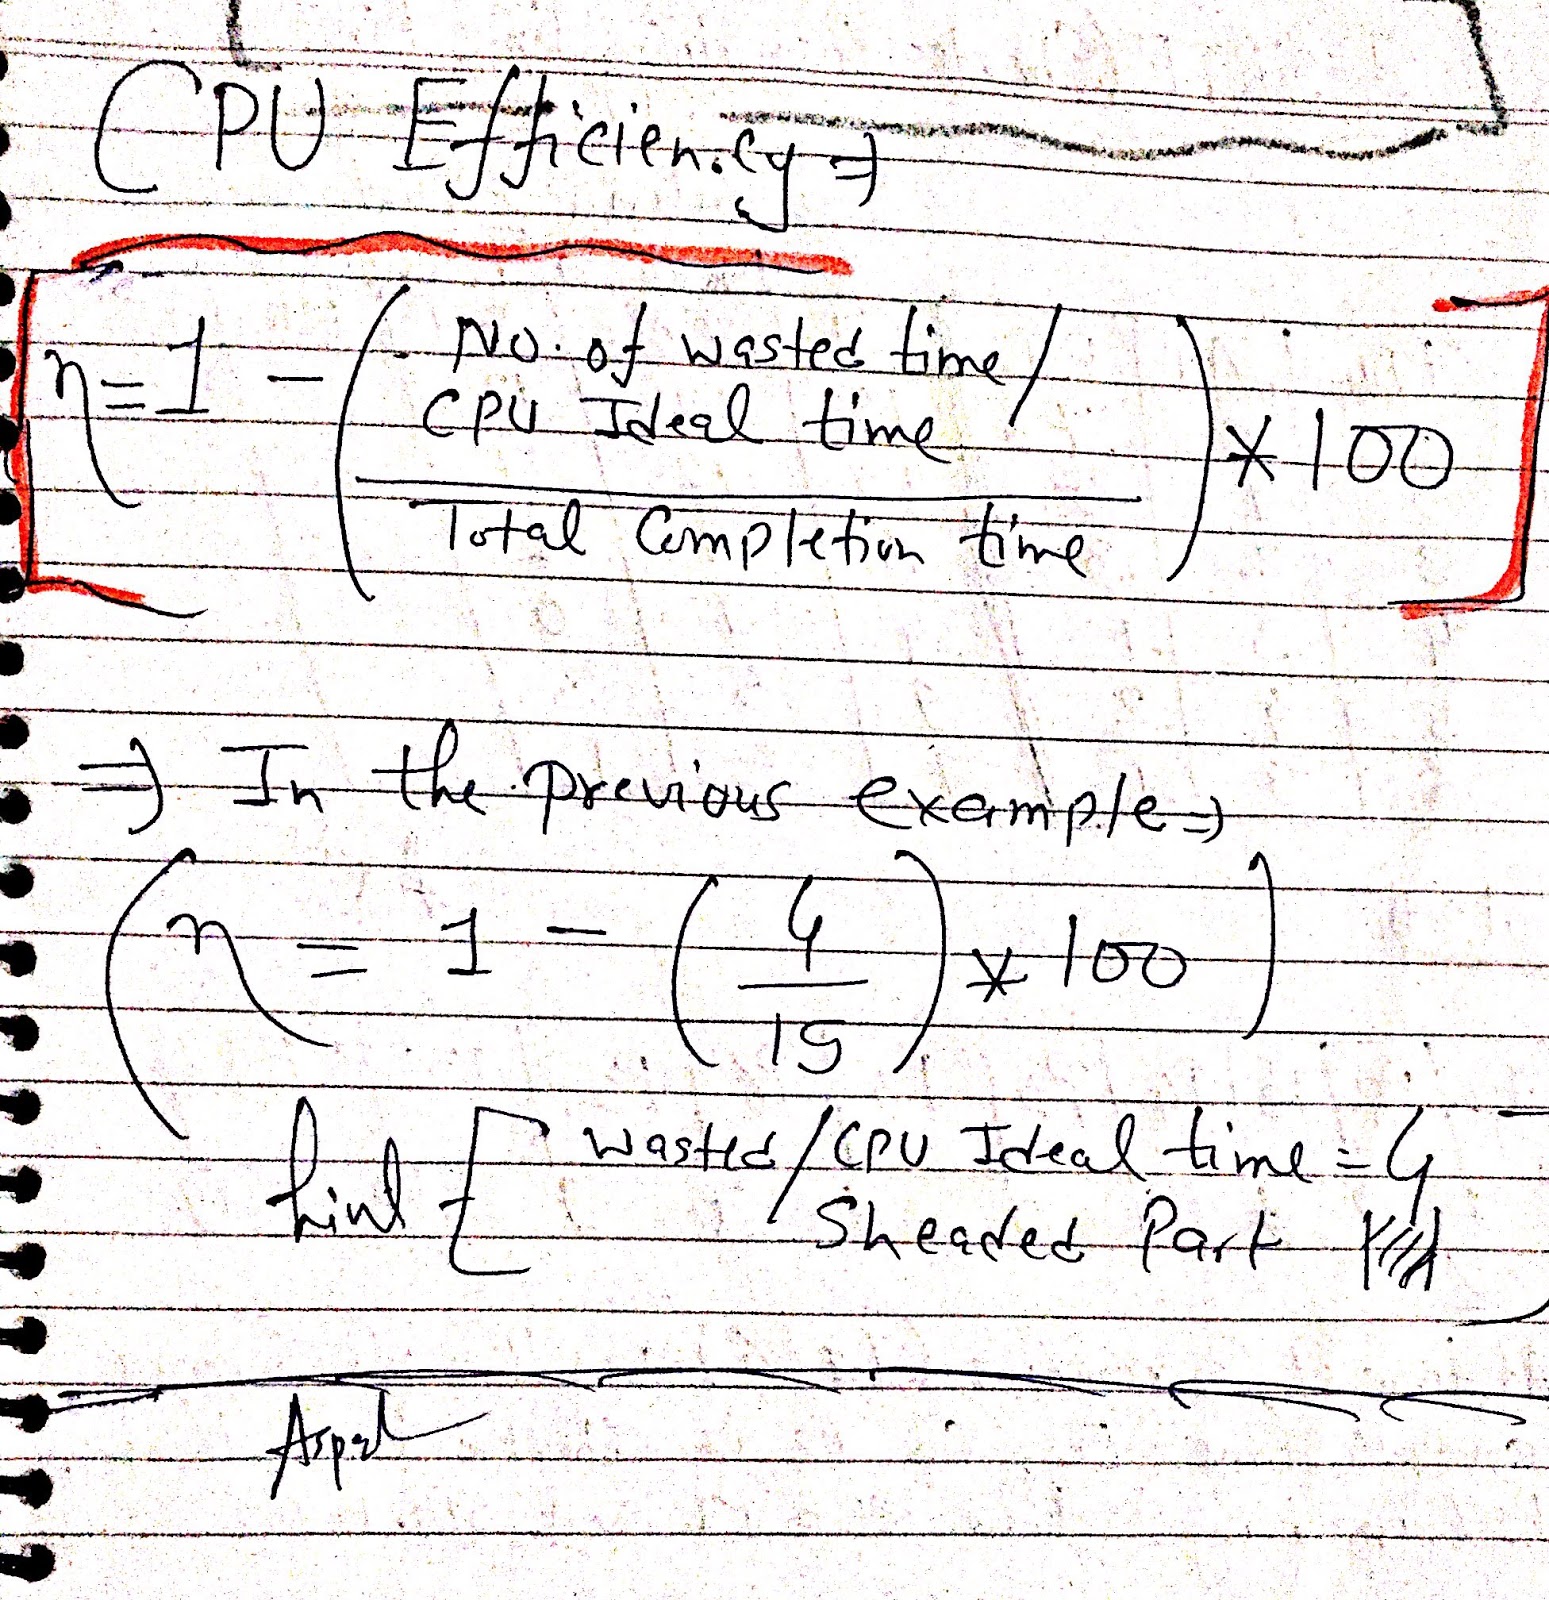 CPU Efficiency ⇒
η = 1 - ( No. of wasted time /
CPU Ideal time
Total Completion time ) * 100
⇒ In the previous example ⇒
( η = 1 - ( 4 / 15 ) * 100 )
hint [ wasted / CPU Ideal time = 4
Sheaded Part ]